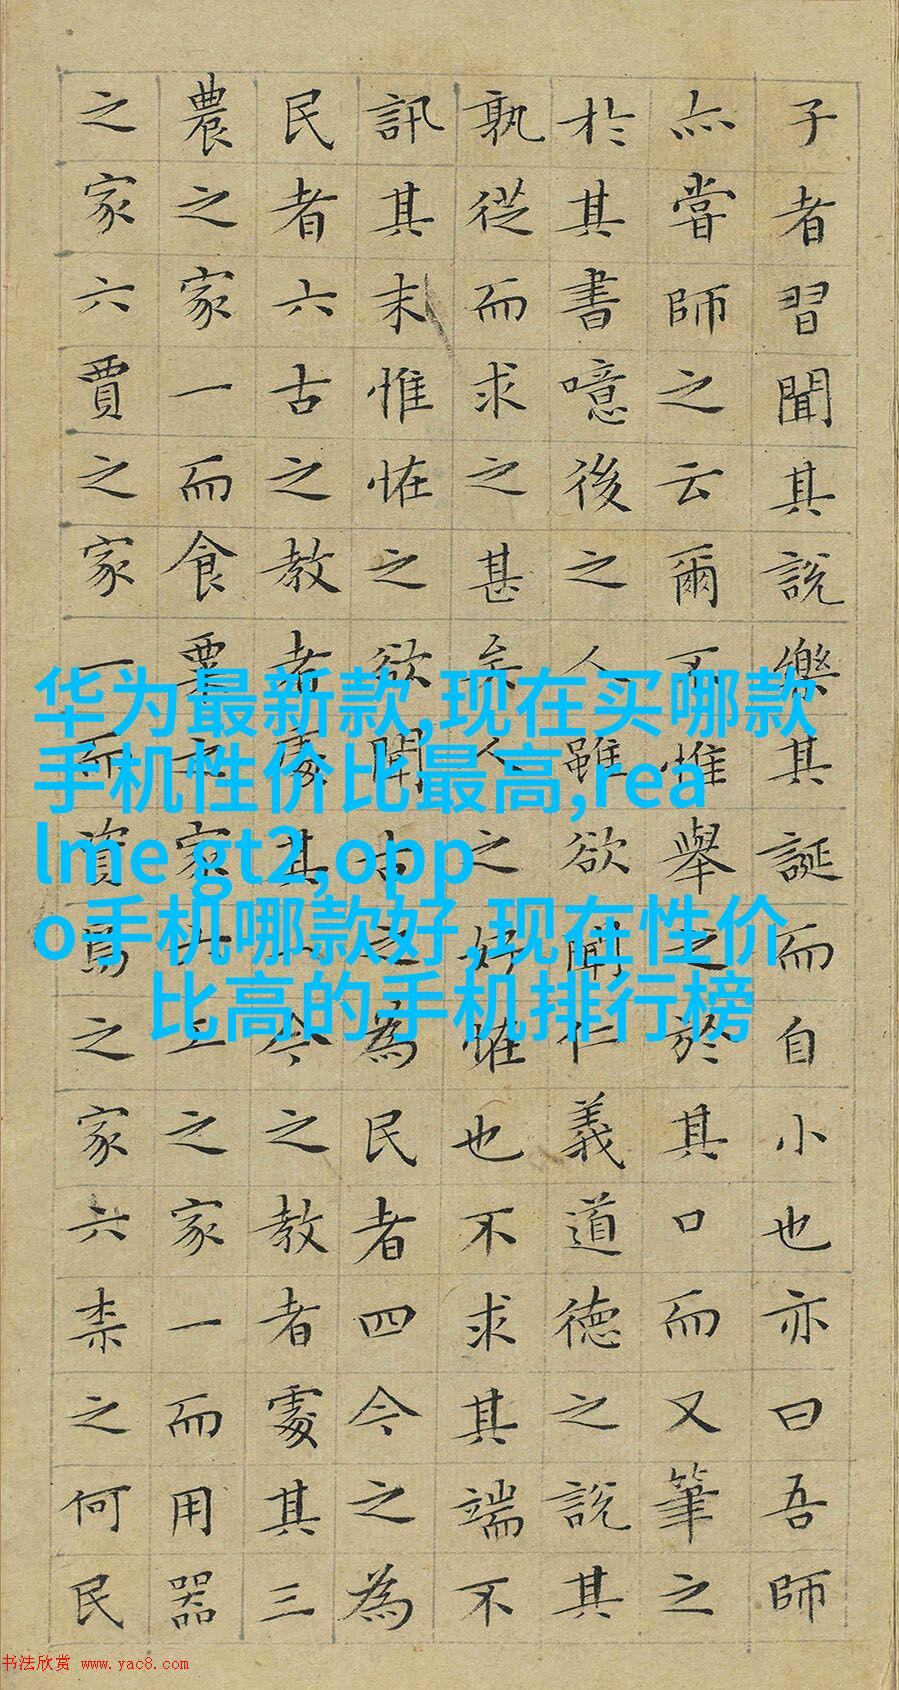 子者習聞其說樂其誕而自小也亦曰吾師
亦嘗師之云爾不惟舉之於其口而又筆之
於其書噫後之人雖欲聞仁義道德之說其
孰從而求之甚矣人之好怪也不求其端不
訊其末惟怪之欲聞古之為民者四今之為
民者六古之教者處其一今之教者處其三
農之家一而食粟之家六工之家一而用器
之家六賈之家一而資焉之家六柰之何民
华为最新款,现在买哪款
手机性价比最高,rea
lme gt2,opp
o手机哪款好,现在性价
比高的手机排行榜
书法欣赏 www.yac8.com